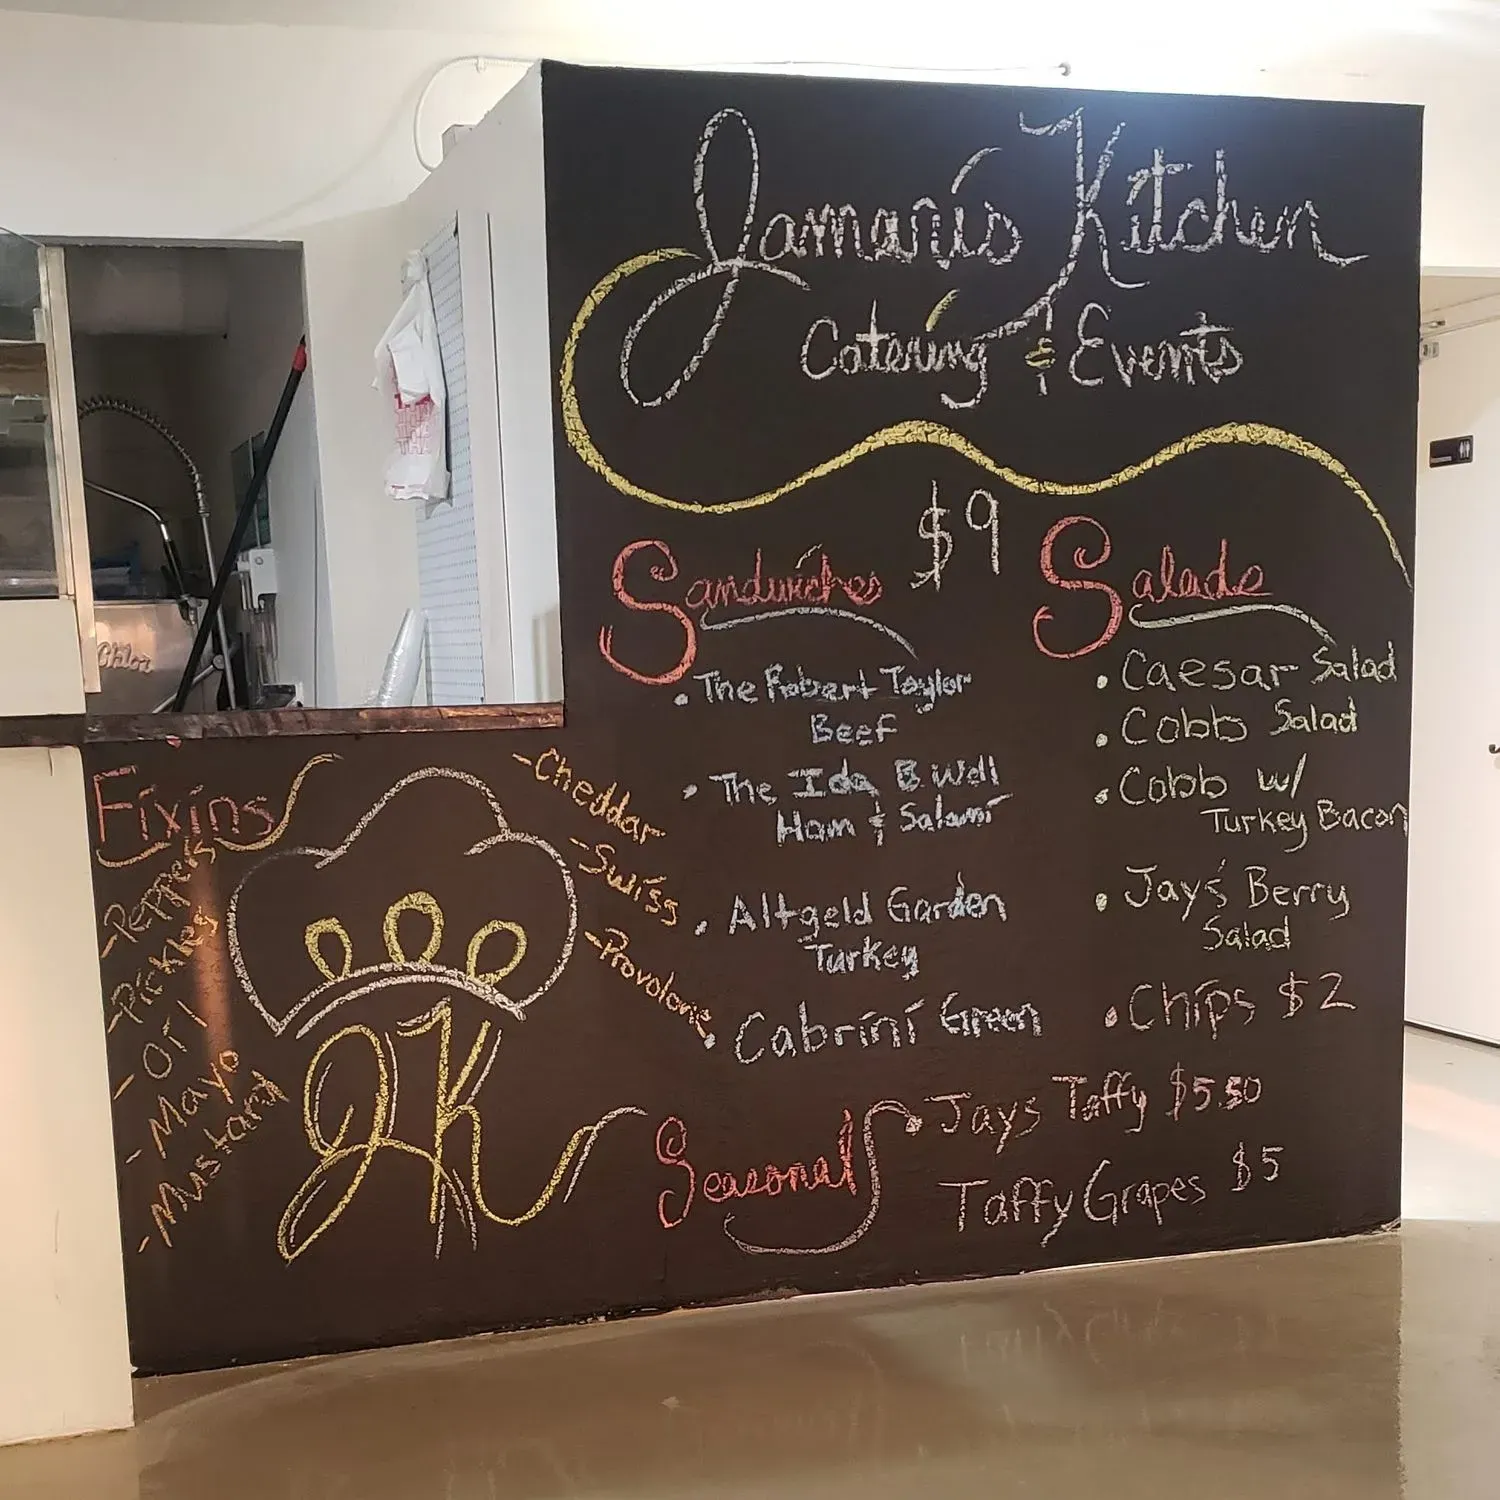 Jamari's Kitchen
Catering & Events
$9
Sandwiches
• The Robert Taylor
Beef
• The Ida B. Well
Ham & Salami
• Altgeld Garden
Turkey
• Cabrini Green
Salads
• Caesar Salad
• Cobb Salad
• Cobb w/
Turkey Bacon
• Jay's Berry
Salad
• Chips $2
Seasonal
• Jays Taffy $5.50
Taffy Grapes $5
Fixins
- Peppers
- Pickles
- Oil
- Mayo
- Mustard
- Cheddar
- Swiss
- Provolone
JK
Chloe